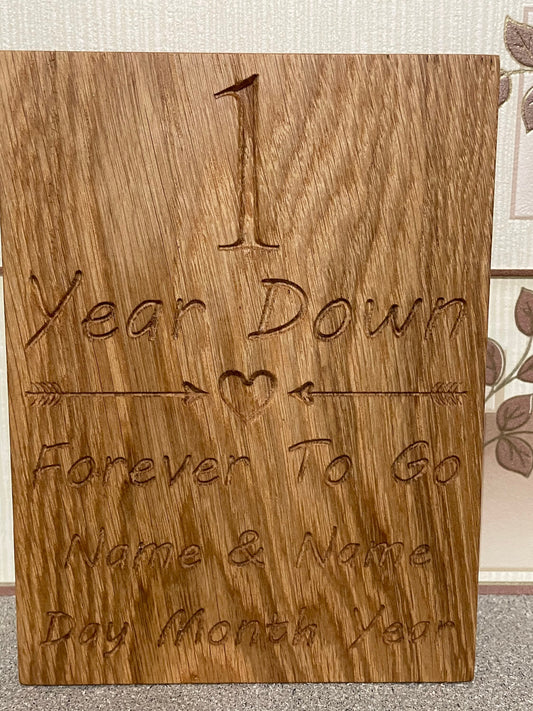 1
Year Down
Forever To Go
Name & Name
Day Month Year